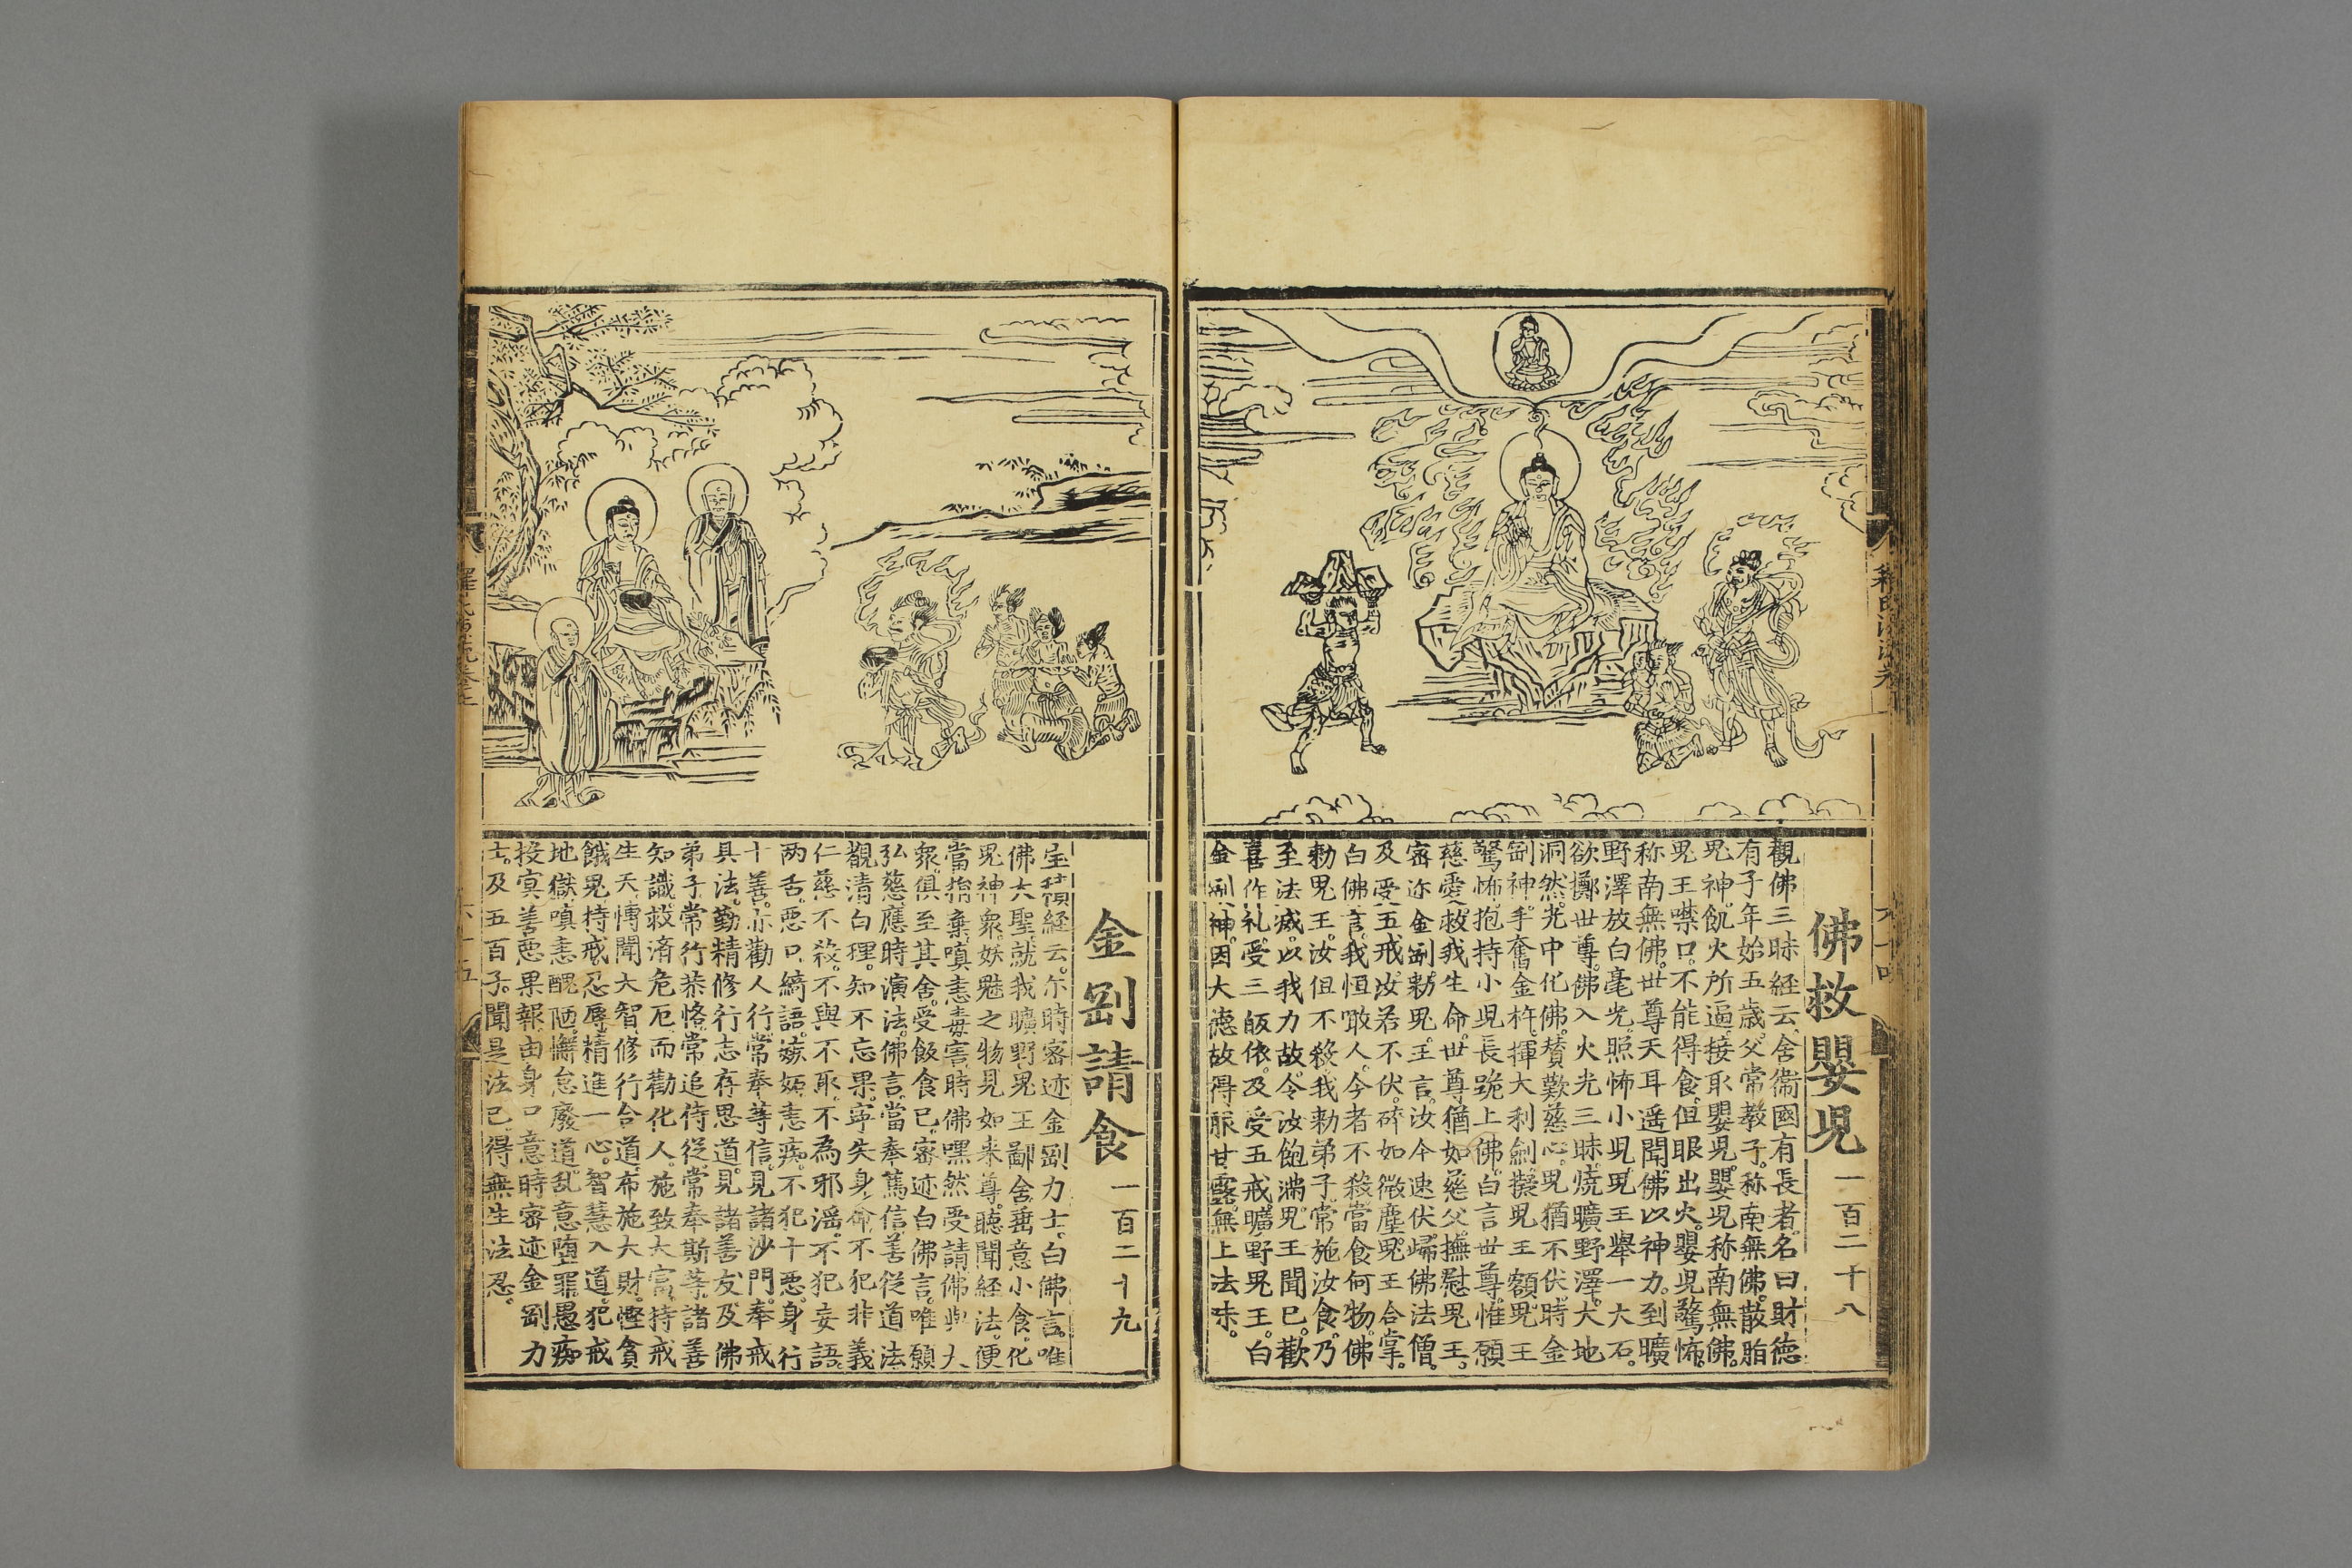 佛救嬰児一百二十八
觀佛三昧経云舍衞國有長者名曰財德
有子年始五歳父常教子称南無佛散脂
鬼神飢火所逼接取嬰児嬰児称南無佛
鬼王噤口不能得食但眼出火嬰児驚怖
称南無佛世尊天耳遥聞佛以神力到曠
野澤放白毫光照怖小児鬼王擧一大石
欲擲世尊佛入火光三昧燒曠野澤大地
洞然光中化佛賛歎慈心鬼猶不伏時金
剛神手奮金杵揮大利劍擬鬼王額鬼王
驚怖抱持小児長跪上佛白言世尊惟願
慈愛救我生命世尊猶如慈父撫慰鬼王
密迹金剛勅鬼王言汝今速伏歸佛法僧
及受五戒汝若不伏碎如微塵鬼王合掌
白佛言我恒噉人今者不殺當食何物佛
勅鬼王汝但不殺我勅弟子常施汝食乃
至法㓕以我力故令汝飽滿鬼王聞已歡
喜作礼受三皈依及受五戒曠野鬼王白
金剛神因大德故得服甘露無上法味
金剛請食一百二十九
宝積経云尒時密迹金剛力士白佛言唯
佛大聖就我曠野鬼王鄙舍垂意小食化
鬼神衆妖魅之物見如来尊聴聞経法便
當捨棄嗔恚毒害時佛嘿然受請佛與大
衆俱至其舍受飯食已密迹白佛言唯願
弘慈應時演法佛言當奉篤信善從道法
覩清白理知不忘果寧失身命不犯非義
仁慈不殺不與不取不為邪滛不犯妄語
两舌惡口綺語嫉妬恚痴不犯十惡身行
十善亦勸人行常奉等信見諸沙門奉戒
具法勤精修行志存思道見諸善友及佛
弟子常行恭恪常追侍從常奉斯等諸善
知識救済危厄而勸化人施致大富持戒
生天博聞大智修行合道布施大財慳貪
餓鬼持戒忍辱精進一心智慧入道犯戒
地獄嗔恚醜陋懈怠廢道乱意堕罪愚痴
投㝠善惡果報由身口意時密迹金剛力
士及五百子聞是法已得無生法忍